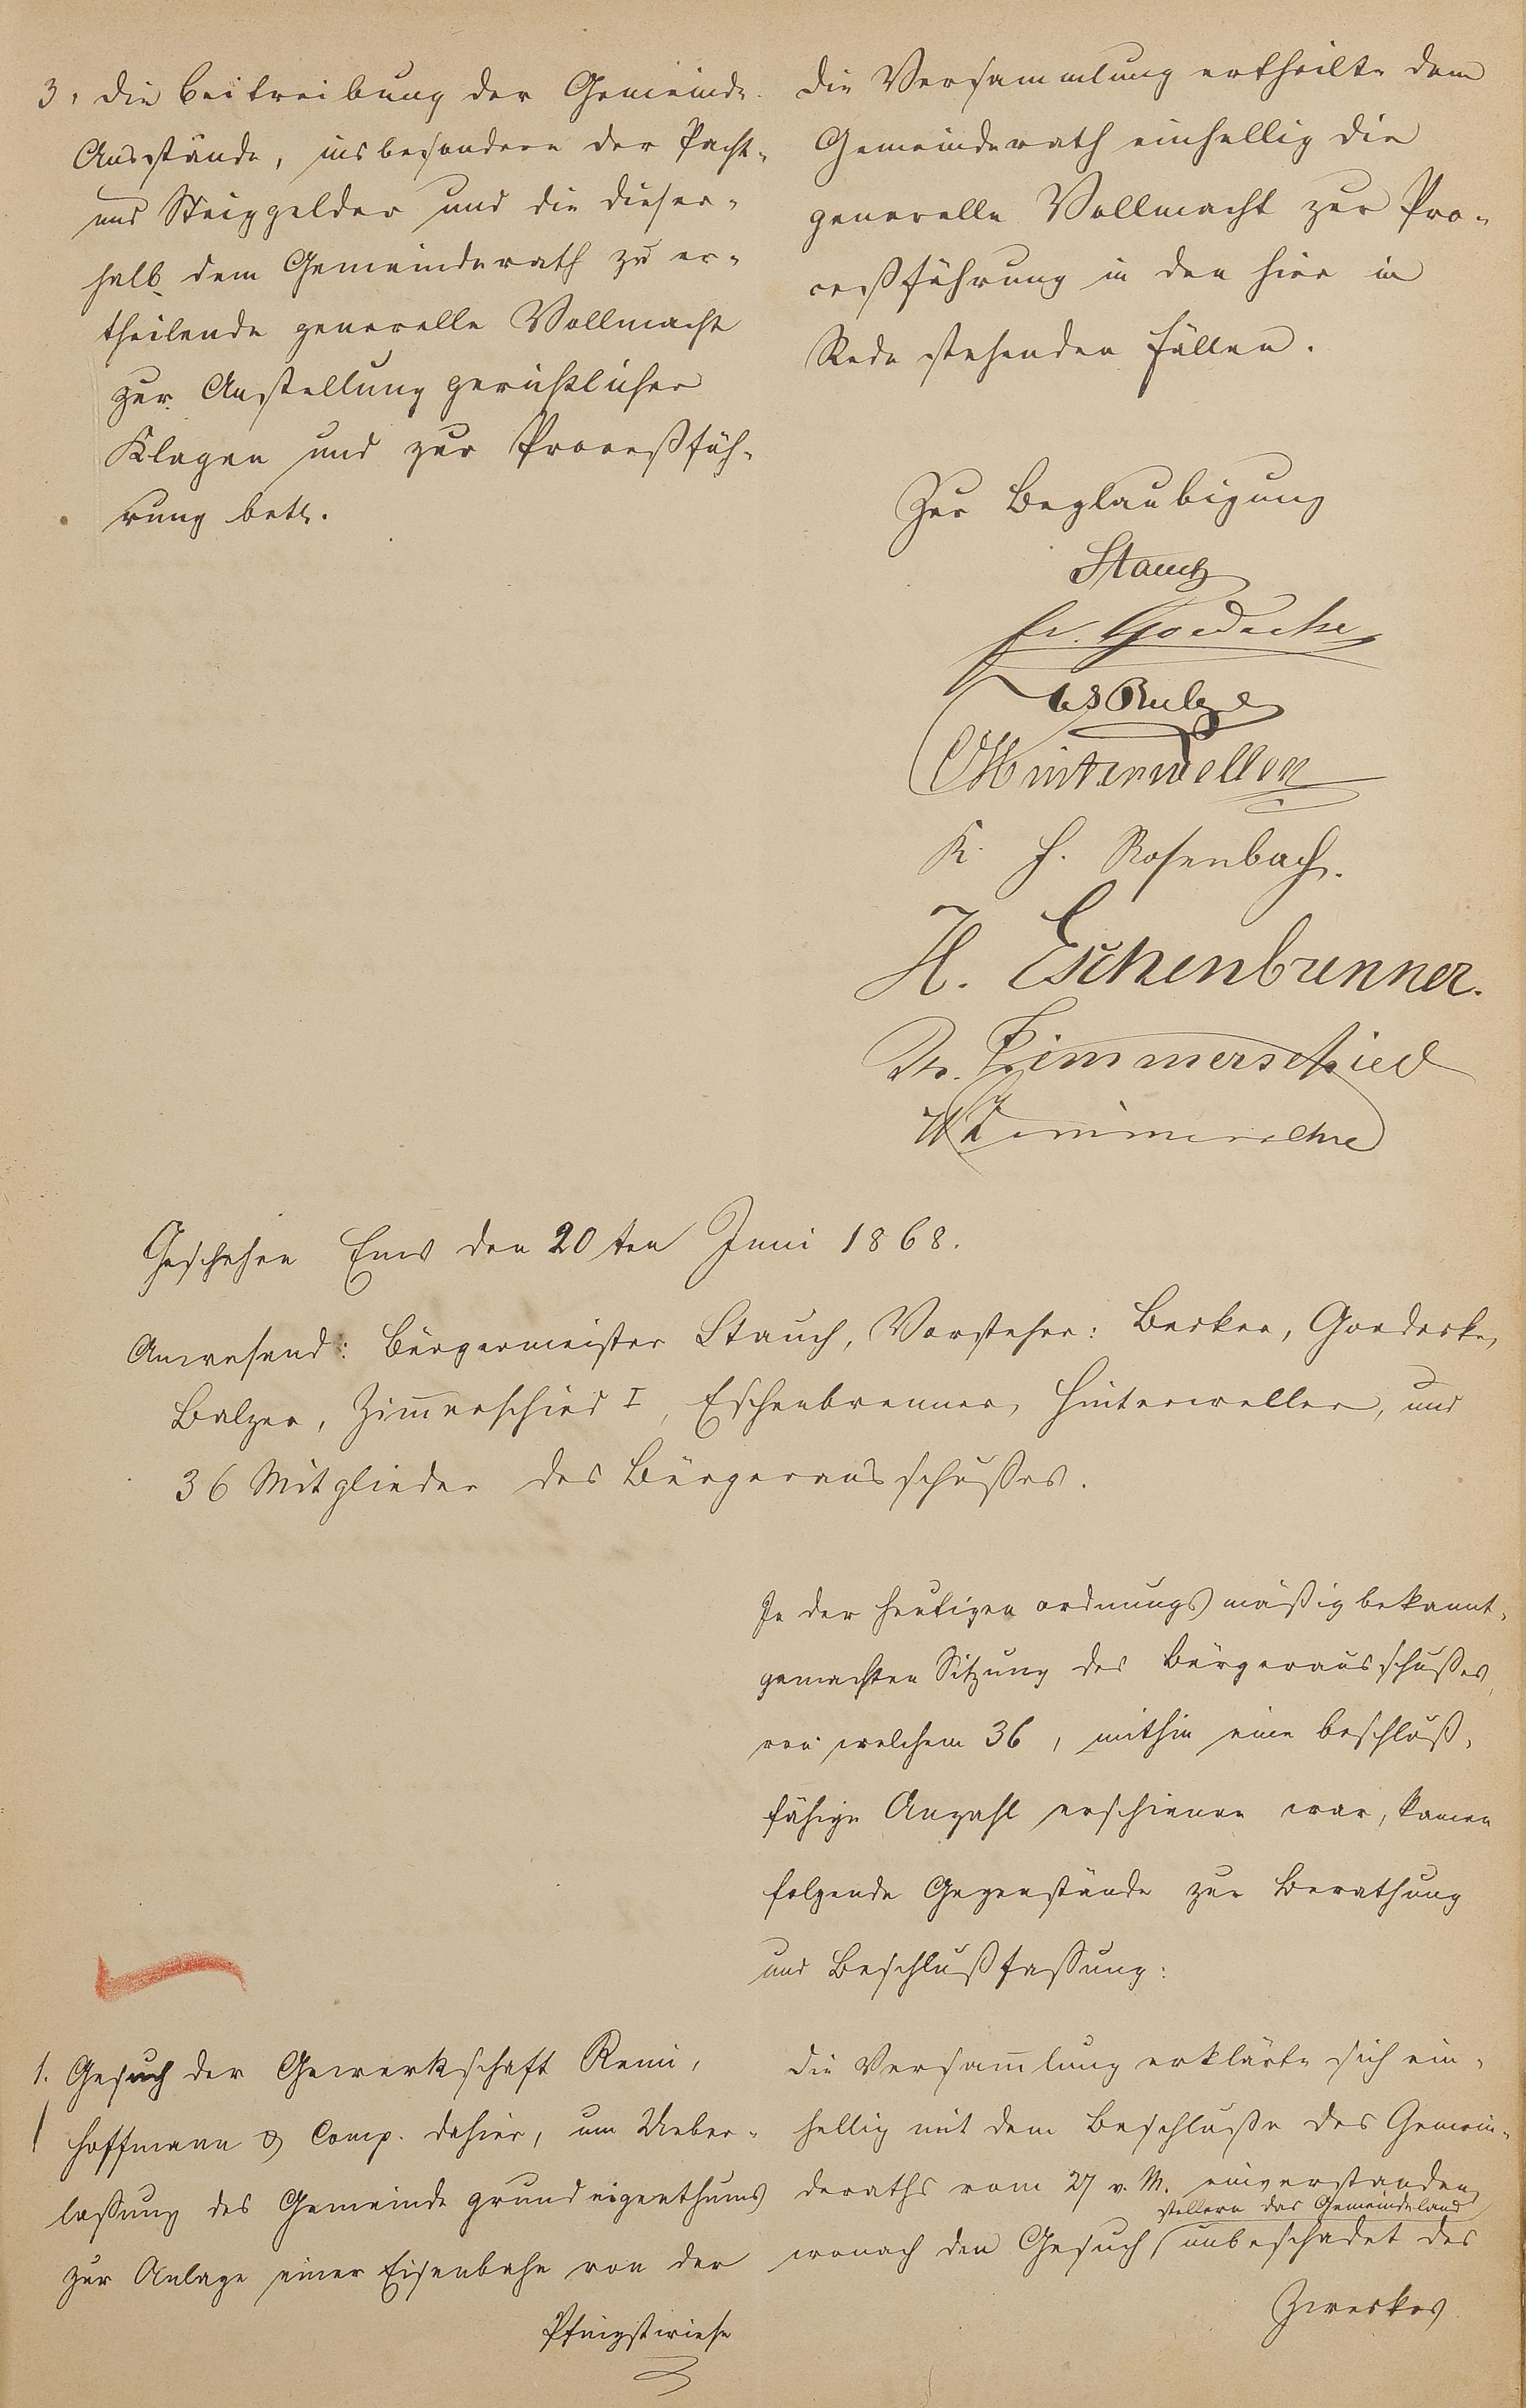 3, Die Beitreibung der Gemeinde-
Ausstände, insbesondere der Pacht-
und Steiggelder und die dieser-
halb dem Gemeinderath zu er-
theilende generelle Vollmacht
zur Anstellung gerichtlicher
Klagen und zur Proceßfüh-
rung betr.
Die Versammlung ertheilte dem
Gemeinderath einhellig die
generelle Vollmacht zur Pro-
ceßführung in den hier in
Rede stehenden Fällen.
Zur Beglaubigung
Stauch
Fr. Goedecke
Balzer
Hinterweller
K. H. Rosenbach.
H. Eschenbrenner.
Zimmerschied
Geschehen Ems den 20ten Juni 1868.
Anwesend: Bürgermeister Stauch, Vorsteher: Becker, Goedecke,
Balzer, Zimerschied I, Eschenbrenner, Hinterweller, und
36 Mitglieder des Bürgerausschußes.
In der heutigen ordnungsmäßig bekannt-
gemachten Sitzung des Bürgerausschußes,
von welchem 36, mithin eine beschluß-
fähige Anzahl erschienen war, kamen
folgende Gegenstände zur Berathung
und Beschlußfassung:
1. Gesuch der Gewerkschaft Remi,
Hoffmann & Comp. dahier, um Ueber-
lassung des Gemeindegrundeigenthums
zur Anlage einer Eisenbahn von der
Pfingstwiese
Die Versamlung erklärte sich ein-
hellig mit dem Beschluße des Gemein-
deraths vom 27 v. M. einverstanden,
stellern das Gemeindeland
wonach den Gesuch unbeschadet des
Zweckes